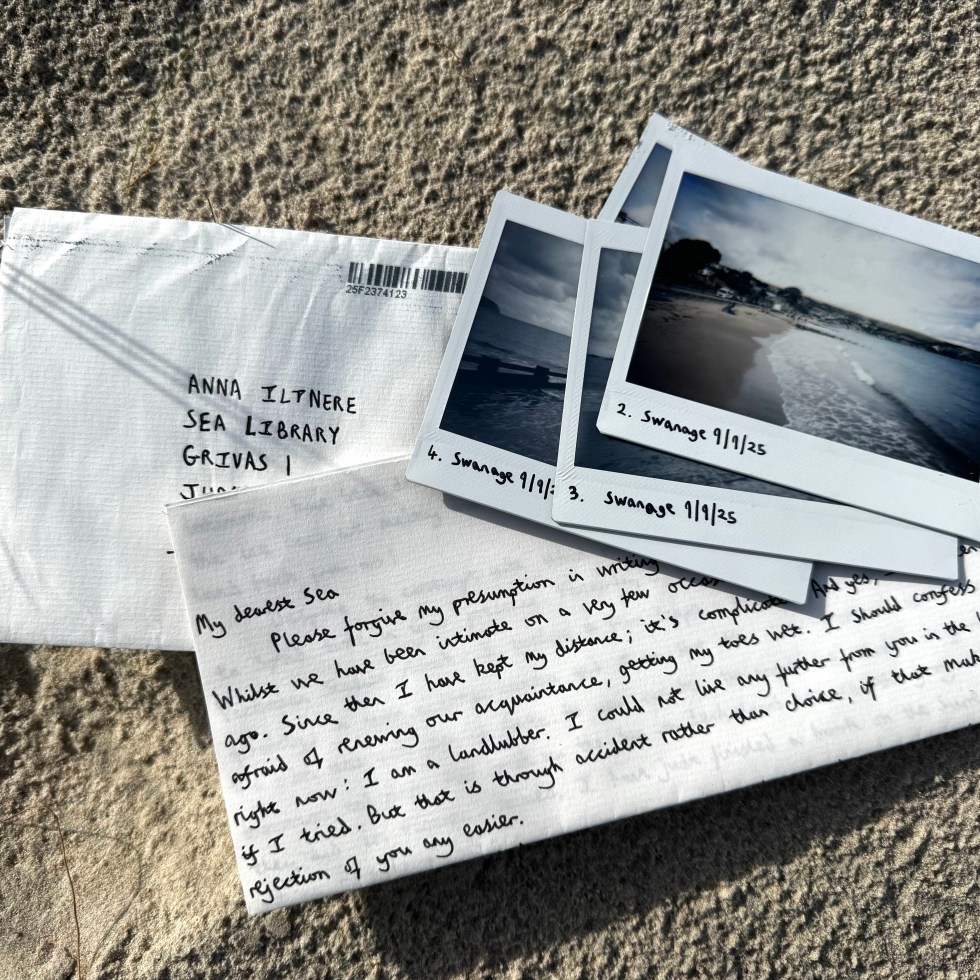 25F2374123
ANNA ILTNERE
SEA LIBRARY
GRIVAS 1
2. Swanage 9/9/25
4. Swanage 9/9/2
3. Swanage 9/9/25
My dearest Sea
Please forgive my presumption in writing
Whilst we have been intimate on a very few
ago. Since then I have kept my distance; it's And yes,
afraid of renewing our acquaintance, getting my toes wet. I should confess
right now: I am a landlubber. I could not live any further from you in the
if I tried. But that is through accident rather than choice, if that
rejection of you any easier.